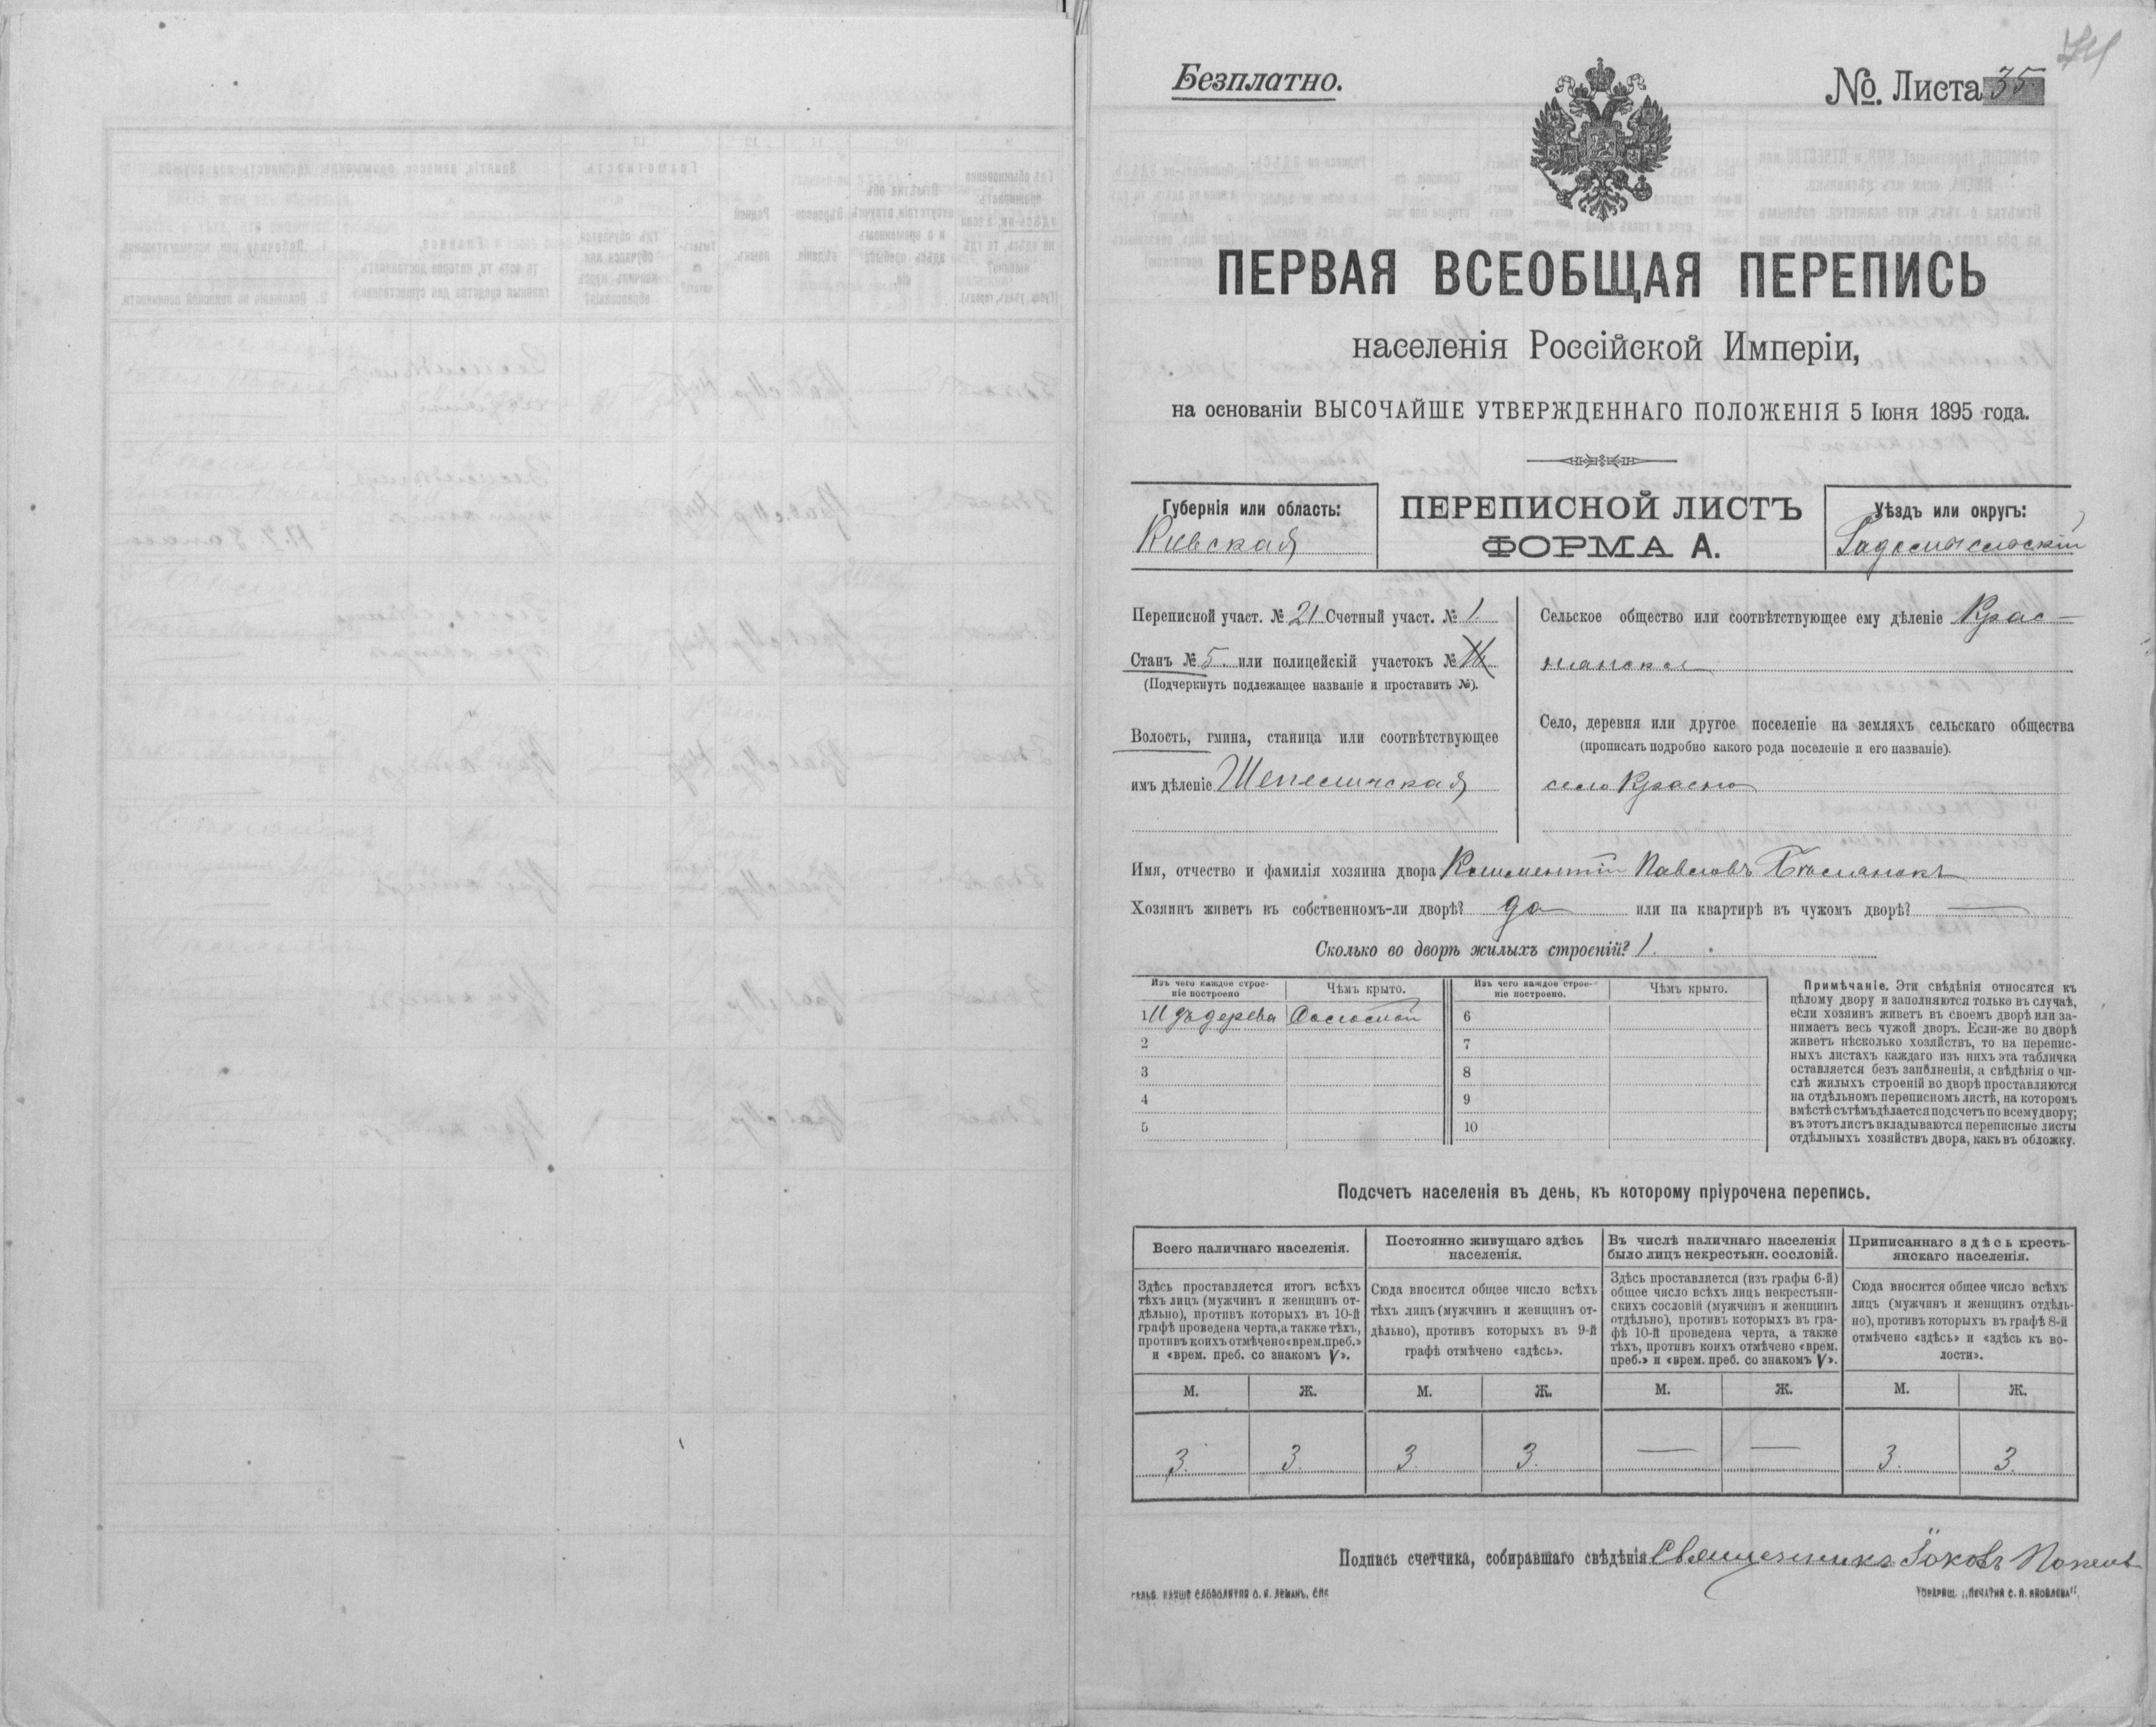 Безплатно.
№. Листа 35
ПЕРВАЯ ВСЕОБЩАЯ ПЕРЕПИСЬ
населенія Россійской Имперіи,
на основаніи ВЫСОЧАЙШЕ УТВЕРЖДЕННАГО ПОЛОЖЕНІЯ 5 Іюня 1895 года.
Губернія или область:
Киевская
ПЕРЕПИСНОЙ ЛИСТЪ
ФОРМА А.
Уѣздъ или округъ:
Радомысльскій
Переписной участ. № 21 Счетный участ. № 1.
Станъ № 5. или полицейскій участокъ №
(Подчеркнуть подлежащее названіе и проставить №).
Волость, гмина, станица или соотвѣтствующее
имъ дѣленіе Шепеличская
Сельское общество или соотвѣтствующее ему дѣленіе Крас-
нянское
Село, деревня или другое поселеніе на земляхъ сельскаго общества
(прописать подробно какого рода поселеніе и его названіе).
село Красно
Имя, отчество и фамилія хозяина двора Климентій Павловъ
Хозяинъ живетъ въ собственномъ-ли дворѣ? да или на квартирѣ въ чужомъ дворѣ? —
Сколько во дворѣ жилыхъ строеній? 1.
Изъ чего каждое строе-
ніе построено
Чѣмъ крыто.
Изъ чего каждое строе-
ніе построено.
Чѣмъ крыто.
1 Изъ дерева Соломой 6
2 7
3 8
4 9
5 10
Примѣчаніе. Эти свѣдѣнія относятся къ
цѣлому двору и заполняются только въ случаѣ,
если хозяинъ живетъ въ своемъ дворѣ или за-
нимаетъ весь чужой дворъ. Если-же во дворѣ
живетъ нѣсколько хозяйствъ, то на перепис-
ныхъ листахъ каждаго изъ нихъ эта табличка
оставляется безъ заполненія, а свѣдѣнія о чи-
слѣ жилыхъ строеній во дворѣ проставляются
на отдѣльномъ переписномъ листѣ, на которомъ
вмѣстѣ съ тѣмъ дѣлается подсчетъ по всему двору;
въ этотъ листъ вкладываются переписные листы
отдѣльныхъ хозяйствъ двора, какъ въ обложку.
Подсчетъ населенія въ день, къ которому пріурочена перепись.
Всего наличнаго населенія.
Здѣсь проставляется итогъ всѣхъ
тѣхъ лицъ (мужчинъ и женщинъ от-
дѣльно), противъ которыхъ въ 10-й
графѣ проведена черта, а также тѣхъ,
противъ коихъ отмѣчено «врем. преб.»
и «врем. преб. со знакомъ V».
Постоянно живущаго здѣсь
населенія.
Сюда вносится общее число всѣхъ
тѣхъ лицъ (мужчинъ и женщинъ от-
дѣльно), противъ которыхъ въ 9-й
графѣ отмѣчено «здѣсь».
Въ числѣ наличнаго населенія
было лицъ некрестьян. сословій.
Здѣсь проставляется (изъ графы 6-й)
общее число всѣхъ лицъ некрестьян-
скихъ сословій (мужчинъ и женщинъ
отдѣльно), противъ которыхъ въ гра-
фѣ 10-й проведена черта, а также
тѣхъ, противъ коихъ отмѣчено «врем.
преб.» и «врем. преб. со знакомъ V».
Приписаннаго здѣсь кресть-
янскаго населенія.
Сюда вносится общее число всѣхъ
лицъ (мужчинъ и женщинъ отдѣль-
но), противъ которыхъ въ графѣ 8-й
отмѣчено «здѣсь» и «здѣсь къ во-
лости».
М. Ж. М. Ж. М. Ж. М. Ж.
3. 3. 3. 3. — — 3. 3.
Подпись счетчика, собиравшаго свѣдѣнія Священникъ Іаковъ